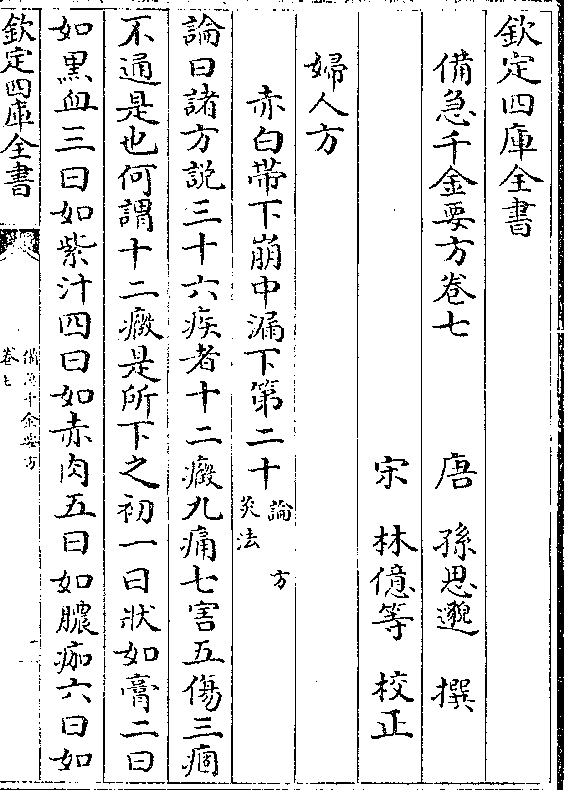 欽定四庫全書
備急千金要方卷七
唐 孫思邈 撰
宋 林億等 校正
婦人方
赤白帶下崩中漏下第二十 論 方 灸法
論曰諸方説三十六疾者十二癥九痛七害五傷三痼
不通是也何謂十二癥是所下之初一曰狀如膏二曰
如黒血三曰如紫汁四曰如赤肉五曰如膿痂六曰如
欽定四庫全書
備急千金要方
卷七